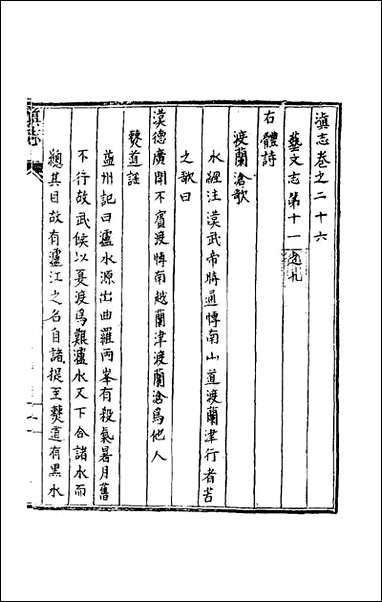 滇志卷之二十六
藝文志第十一之九
右體詩
渡蘭滄歌
水經注漢武帝時通愽南山道渡蘭津行者苦
之歌曰
漢德廣開不賓渡愽南越蘭津渡蘭滄爲他人
僰道謡
益州記曰瀘水源出曲羅兩峯有殺氣暑月舊
不行故武侯以夏渡爲艱瀘水又下合諸水而
總其目故有瀘江之名自諸提至僰道有黒水
滇志